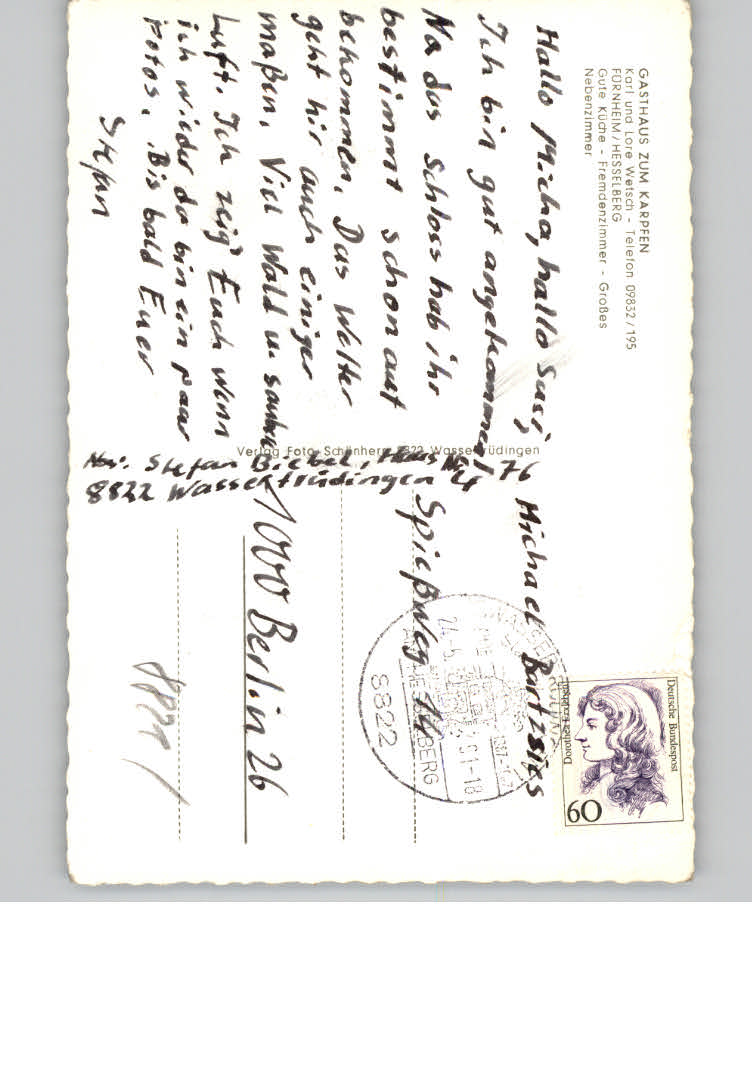 GASTHAUS ZUM KARPFEN
Karl und Lore Wetsch - Telefon 09832/195
FÜRNHEIM/HESSELBERG
Gute Küche - Fremdenzimmer - Großes
Nebenzimmer
Hallo Micha, hallo Susi,
Ich bin gut angekommen.
Na das Schloss hab ihr
bestimmt schon auf
bekommen. Das Wetter
geht hir auch einiger
maßen. Viel Wald u. saubre
Luft. Ich zeig Euch wenn
ich wieder da bin ein paar
Fotos. Bis bald Euer
Stefan
Verlag Foto-Schönherr, 8822 Wassertrüdingen
Abs. Stefan Biebel, Haus Nr. 76
8822 Wassertrüdingen 4
Deutsche Bundespost
Dorothea Erxleben
60
WASSERTRÜDINGEN
24.-5.
-18
AM HESSELBERG
8822
Michael Bartzsies
Spießweg
1000 Berlin 26